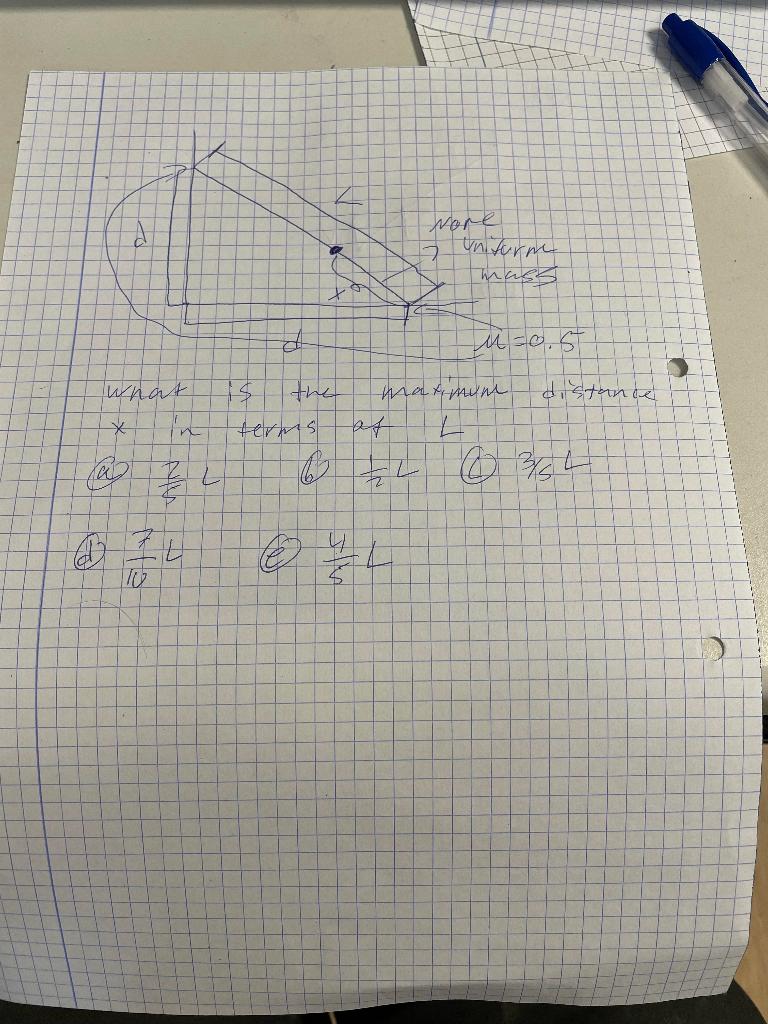 L
None
uniform
mass
d
x
d
μ=0.5
What is the maximum distance
x in terms of L
(a) 2/5 L (b) 1/2 L (c) 3/5 L
(d) 7/10 L (e) 4/5 L